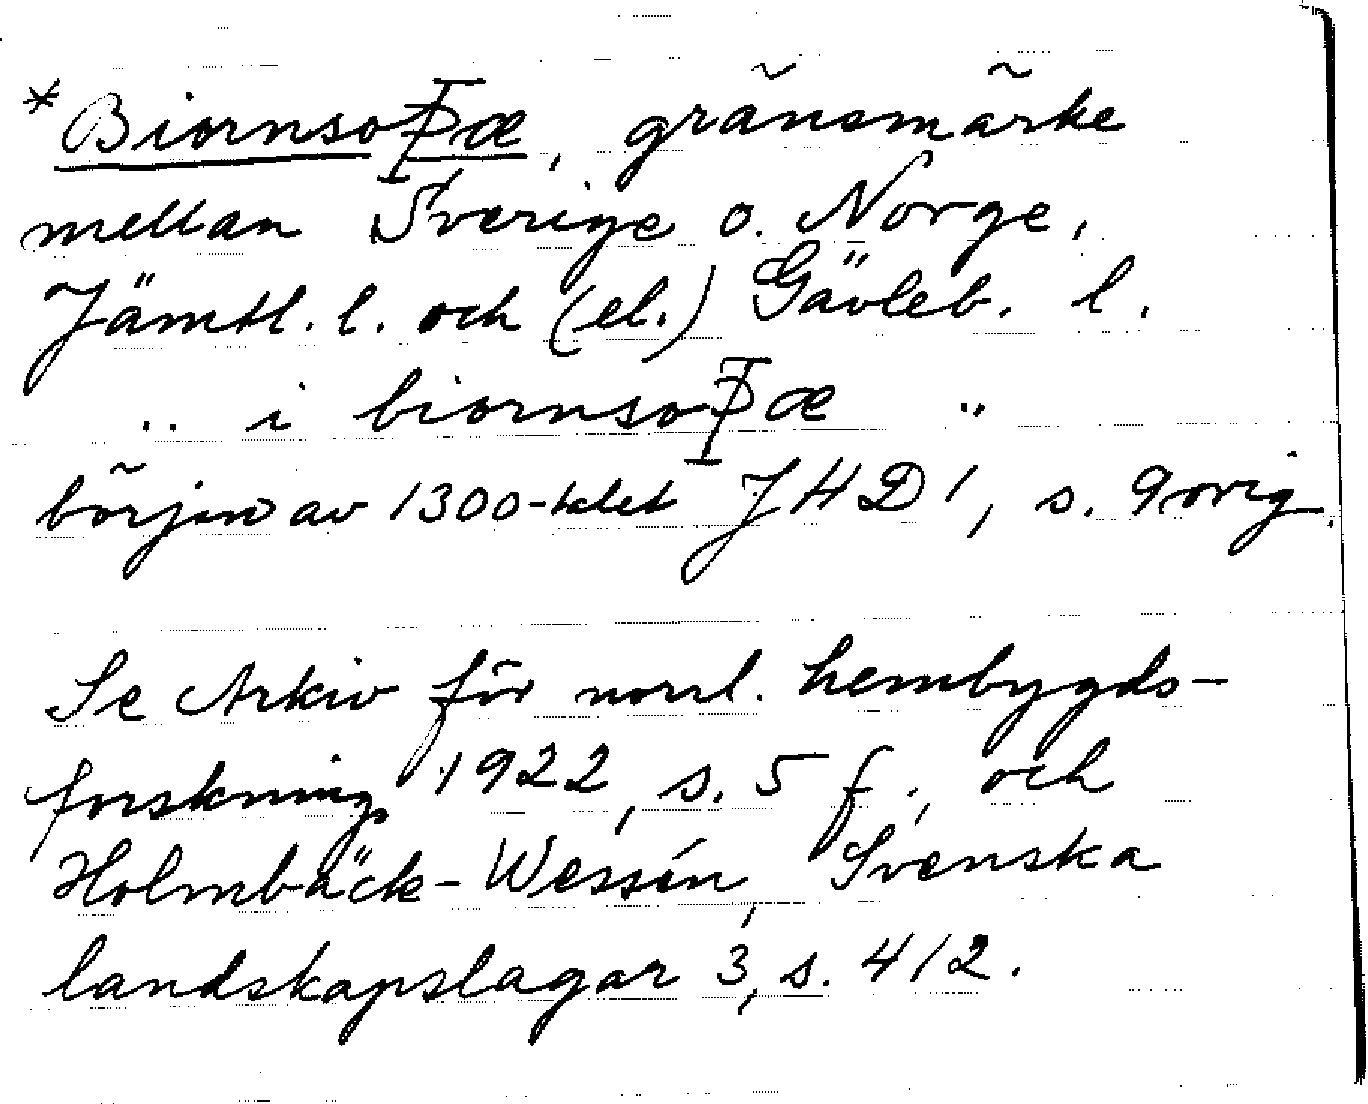 *Biornsoþæ, gränsmärke
mellan Sverige o. Norge,
Jämtl. l. och (el.) Gävleb. l.
.. i biornsoþæ ..
början av 1300-talet JHD 1, s. 9 orig.
Se Arkiv för norrl. hembygds-
forskning 1922, s. 5 f., och
Holmbäck-Wessén, Svenska
landskapslagar 3, s. 412.